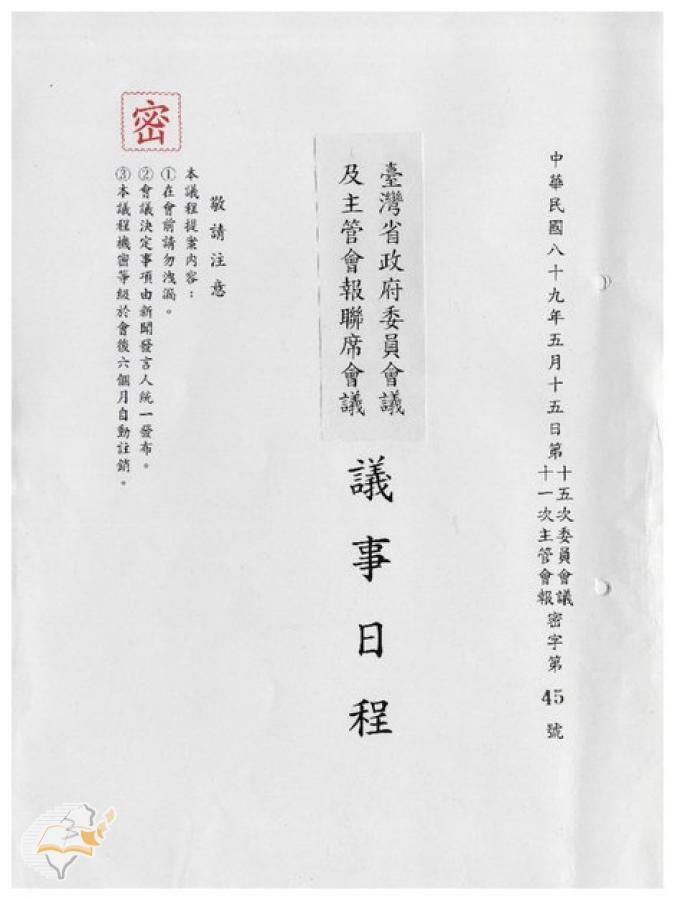 中華民國八十九年五月十五日第
十五次委員會議
十一次主管會報
密字第45號
臺灣省政府委員會議
及主管會報聯席會議
議事日程
敬請注意
本議程提案內容：
①在會前請勿洩漏。
②會議決定事項由新聞發言人統一發布。
③本議程機密等級於會後六個月自動註銷。
密